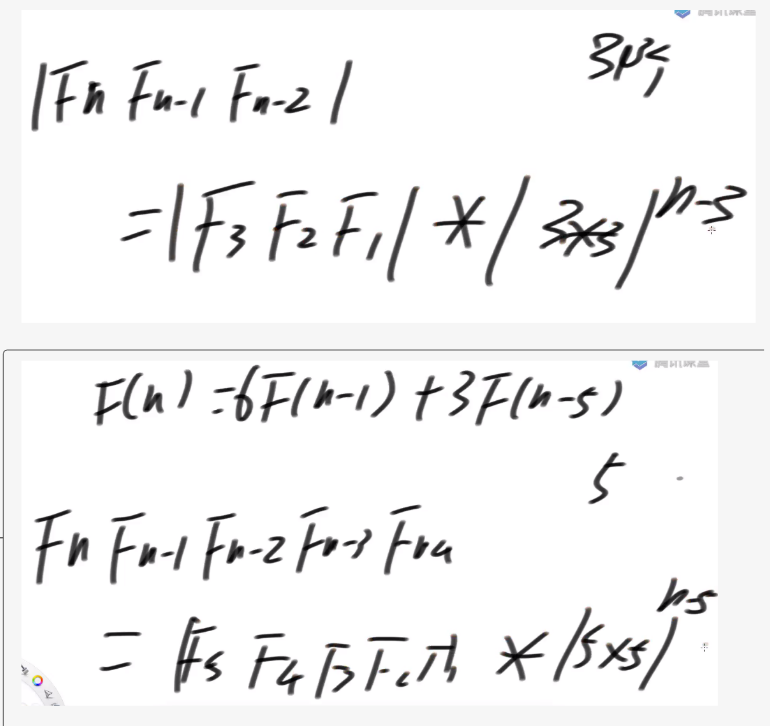 3阶
|Fn Fn-1 Fn-2|
=|F3 F2 F1| * |3×3|^n-3
F(n) = 6F(n-1) + 3F(n-5)
5
Fn Fn-1 Fn-2 Fn-3 Fn-4
= |F5 F4 F3 F2 F1 * |5×5|^n-5